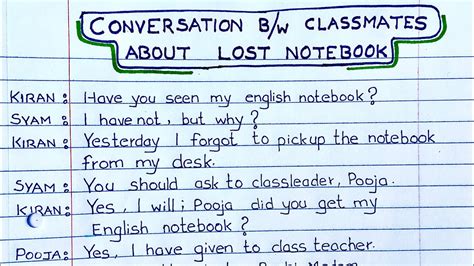 CONVERSATION B/W CLASSMATES
ABOUT LOST NOTEBOOK
KIRAN : Have you seen my english notebook?
SYAM : I have not, but why?
KIRAN : Yesterday I forgot to pickup the notebook
from my desk.
SYAM : You should ask to classleader, Pooja.
KIRAN : Yes, I will; Pooja did you get my
English notebook?
POOJA : Yes, I have given to class teacher.